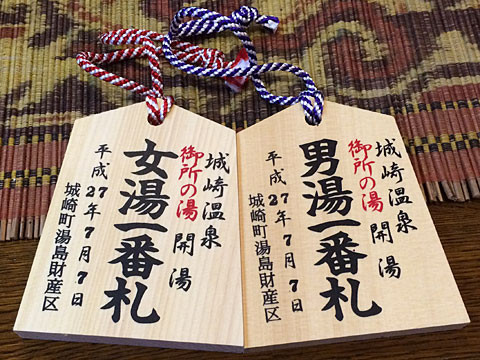 城崎温泉
御所の湯 開湯
男湯一番札
平成27年7月7日
城崎町湯島財産区
城崎温泉
御所の湯 開湯
女湯一番札
平成27年7月7日
城崎町湯島財産区